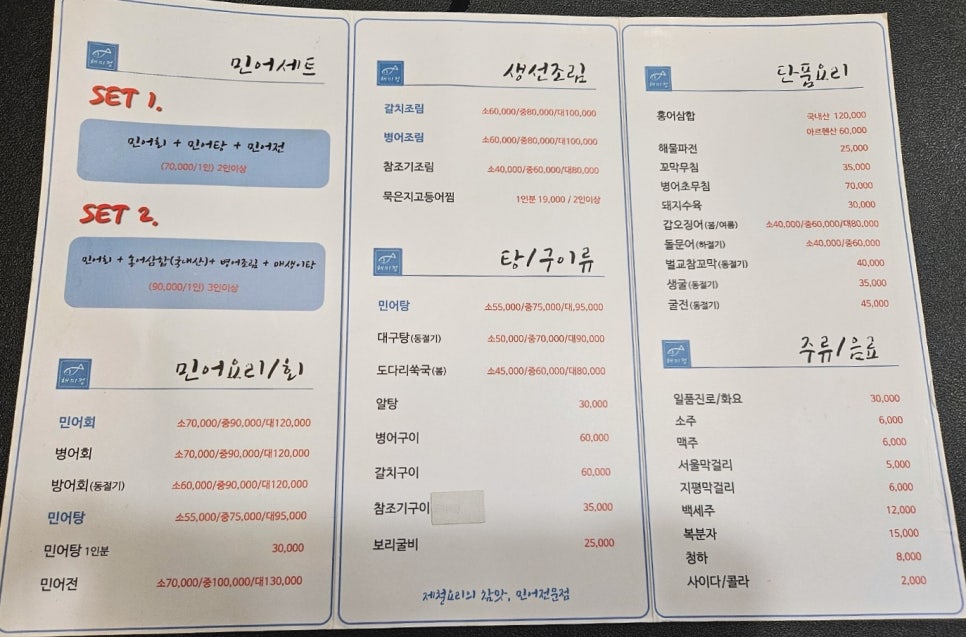 해미정
민어세트
SET 1.
민어회 + 민어탕 + 민어전
(70,000/1인) 2인이상
SET 2.
민어회 + 홍어삼합(국내산)+ 병어조림 + 매생이탕
(90,000/1인) 3인이상
해미정
민어요리/회
민어회 소70,000/중90,000/대120,000
병어회 소70,000/중90,000/대120,000
방어회(동절기) 소60,000/중90,000/대120,000
민어탕 소55,000/중75,000/대95,000
민어탕 1인분 30,000
민어전 소70,000/중100,000/대130,000
해미정
생선조림
갈치조림 소60,000/중80,000/대100,000
병어조림 소60,000/중80,000/대100,000
참조기조림 소40,000/중60,000/대80,000
묵은지고등어찜 1인분 19,000 / 2인이상
해미정
탕/구이류
민어탕 소55,000/중75,000/대,95,000
대구탕(동절기) 소50,000/중70,000/대90,000
도다리쑥국(봄) 소45,000/중60,000/대80,000
알탕 30,000
병어구이 60,000
갈치구이 60,000
참조기구이 35,000
보리굴비 25,000
제철요리의 참맛, 민어전문점
해미정
단품요리
홍어삼합 국내산 120,000
아르헨산 60,000
해물파전 25,000
꼬막무침 35,000
병어초무침 70,000
돼지수육 30,000
갑오징어(봄/여름) 소40,000/중60,000/대80,000
돌문어(하절기) 소40,000/중60,000
벌교참꼬막(동절기) 40,000
생굴(동절기) 35,000
굴전(동절기) 45,000
해미정
주류/음료
일품진로/화요 30,000
소주 6,000
맥주 6,000
서울막걸리 5,000
지평막걸리 6,000
백세주 12,000
복분자 15,000
청하 8,000
사이다/콜라 2,000